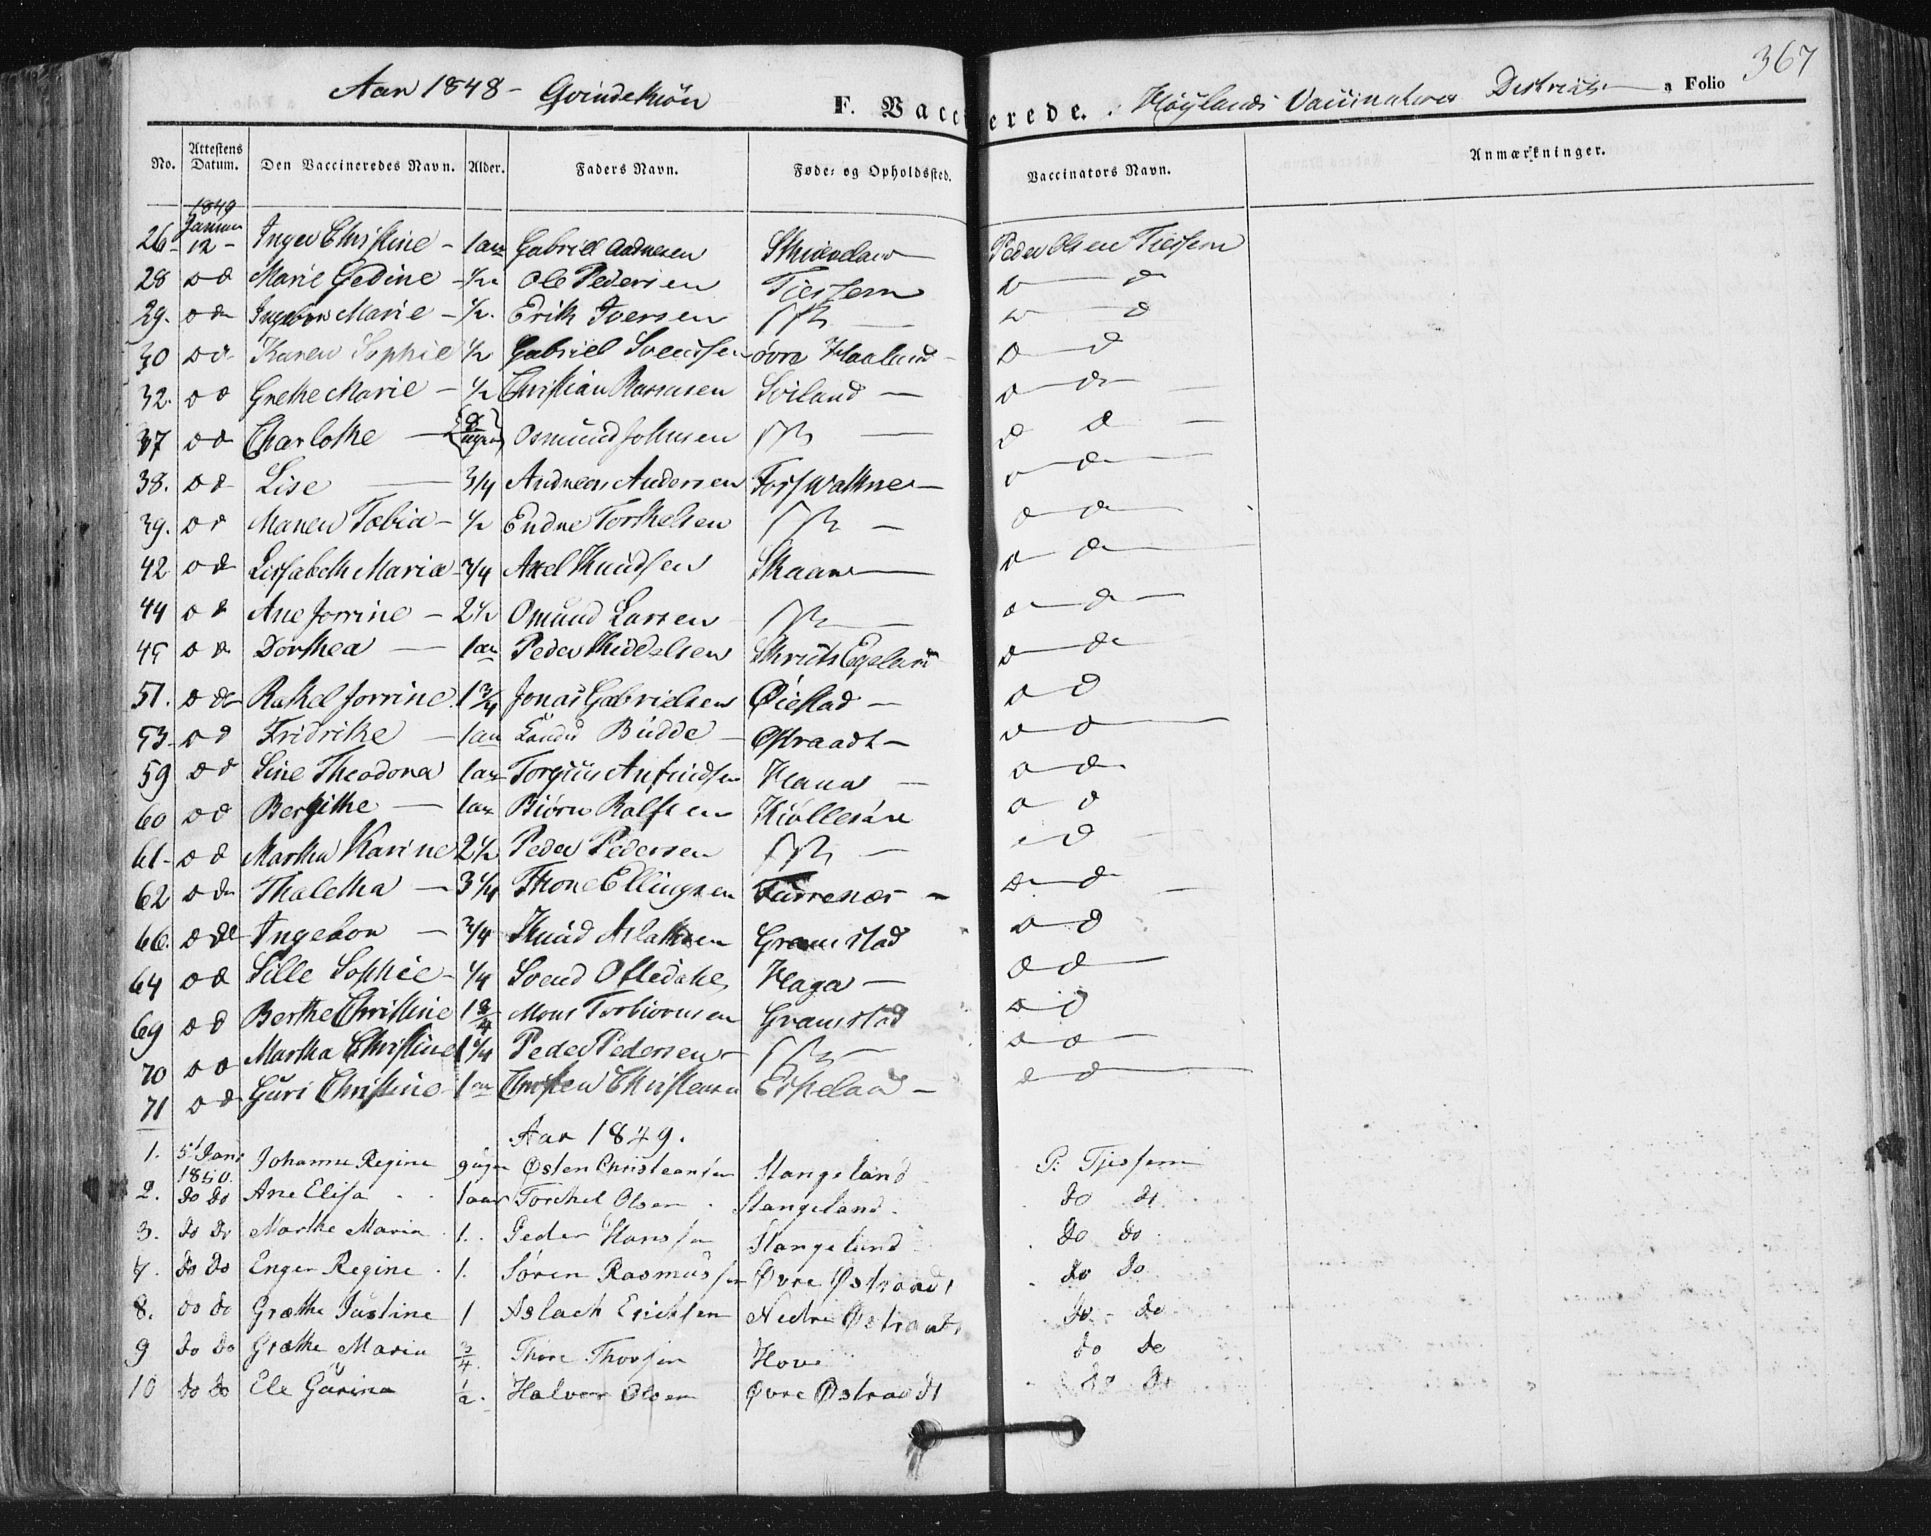 Aar 1848 - Qvindekiøn F. Vaccinerede. Høylands Vaccinations District a Folio 367
No. Attestens Datum. Den Vaccineredes Navn. Alder. Faders Navn. Føde- og Opholdssted. Vaccinators Navn. Anmærkninger.
1849
Januar
26 - 12 - Inger Christine - 1 aar Gabriel Aadnesen Peder Olsen Tiessem
28 do Marie Gedine - 1/2 Ole Pedersen Tiessem do
29. do Ingebor Marie - 1/2. Erik Iversen do
30 do Karen Sophie 1/2 Gabriel Svendsen øvre Haaland do
32. do Grethe Marie - 1/2 Christian Rasmusen Sviland do
37 do Charlothe Osmund Johnsen do
38. do Lise 3/4 Andreas Andersen do
39. do Maren Tobia - 1/2 Endre Torkelsen do
42 do Lissabeth Maria - 3/4 Axel Knudsen do
44 do Ane Jorrine - 2 1/2 Omund Larsen do
45 do Dorthea 1 aar Peder do
51. do Rakel Jorrine 1 3/4 Jonas Gabrielsen Øiestad do
53 do Fridrike - 1 aar Budde Østraadt do
59 do Sine Theodora 1 aar Torgius Anfindsen Hana do
60 do Bergithe 1 aar Biørn Rolfsen Kiøllesøre do
61 - do Martha Karine 2 1/2 Peder Pedersen do
62 do Thaletha - 3 1/4 Thone Ellingsen do
66. do Ingebor - 3/4 Knud Aslaksen Gramstad do
64 do Sille Sophie - 1/4 Svend Oftedahl Haga do
69 do Berthe Christine 1 3/4 Mons Torbiornsen Gramstad do
70 do Martha Christine Peder Pedersen do
71 do Guri Christine 1 aar Christen Christensen Espeland do
Aar 1849.
1. 5 Jan: 1850. Johanne Regine Østen Christeansen Stangeland P: Tjessem
2. do do Ane Elisa 1 aar Torchel Olsen Stangeland. do do
3. do do Marthe Maria 1. Peder Hansen Stangeland do do
7. do do Enger Regine 1. Sören Rasmussen Øvre Østraadt do do
8. do do Græthe Justine 1 Aslach Ericksen Nedre Østraadt do do
9 do do Græthe Maria 3/4. Thore Thorsen Hove do do
10 do do Ele Gurina 1/2. Halvor Olsen Øvre Østraadt do do